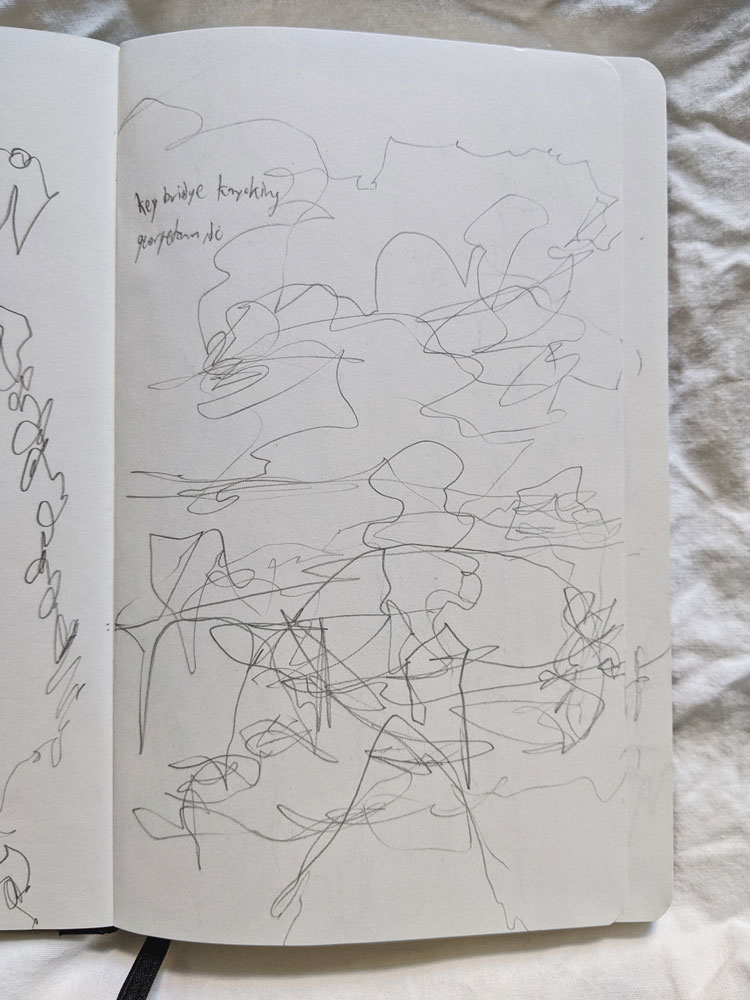 key bridge kayaking
georgetown dc